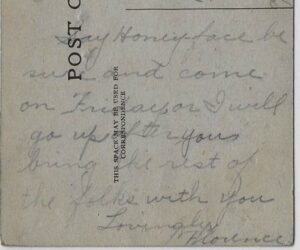 POST C
THIS SPACE MAY BE USED FOR
CORRESPONDENCE
Say Honeyface be
sure and come
on Friday or I will
go up after you
bring the rest of
the folks with you
Lovingly
Florence